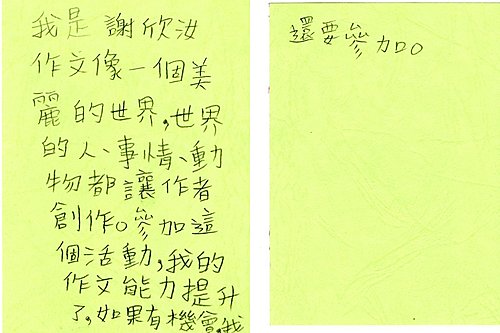 我是謝欣汝
作文像一個美
麗的世界,世界
的人、事情、動
物都讓作者
創作。參加這
個活動,我的
作文能力提升
了,如果有機會,我
還要參加。